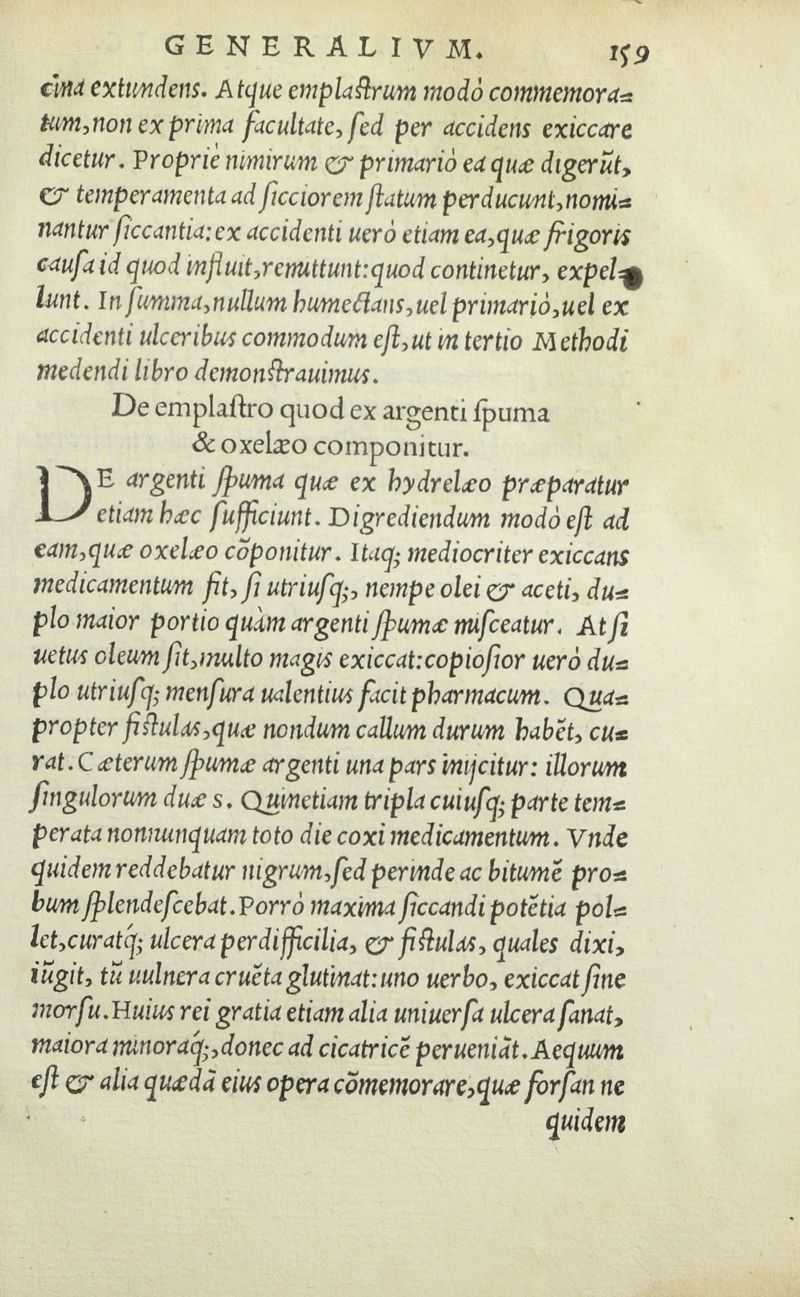 GENERALIVM. 159
cina extundens. Atque emplaſtrum modò commemora=
tum, non ex prima facultate, ſed per accidens exiccare
dicetur. Propriè nimirum & primariò ea quæ digerũt,
& temperamenta ad ſicciorem ſtatum perducunt, nomi=
nantur ſiccantia: ex accidenti uerò etiam ea, quæ frigoris
cauſa id quod influit, remittunt: quod continetur, expel=
lunt. In ſumma, nullum humectans, uel primariò, uel ex
accidenti ulceribus commodum eſt, ut in tertio Methodi
medendi libro demonſtrauimus.
De emplaſtro quod ex argenti ſpuma
& oxelæo componitur.
DE argenti ſpuma quæ ex hydrelæo præparatur
etiam hæc ſufficiunt. Digrediendum modò eſt ad
eam, quæ oxelæo cõponitur. Itaq; mediocriter exiccans
medicamentum fit, ſi utriuſq;, nempe olei & aceti, du=
plo maior portio quàm argenti ſpumæ miſceatur. At ſi
uetus oleum ſit, multo magis exiccat: copioſior uerò du=
plo utriuſq; menſura ualentius facit pharmacum. Qua=
propter fiſtulas, quæ nondum callum durum habẽt, cu=
rat. Cæterum ſpumæ argenti una pars inijcitur: illorum
ſingulorum duæ s. Quinetiam tripla cuiuſq; parte tem=
perata nonnunquam toto die coxi medicamentum. Vnde
quidem reddebatur nigrum, ſed perinde ac bitumẽ pro=
bum ſplendeſcebat. Porrò maxima ſiccandi potẽtia pol=
let, curatq́; ulcera perdifficilia, & fiſtulas, quales dixi,
iũgit, tũ uulnera cruẽta glutinat: uno uerbo, exiccat ſine
morſu. Huius rei gratia etiam alia uniuerſa ulcera ſanat,
maiora minoraq́;, donec ad cicatricẽ perueniãt. Aequum
eſt & alia quædã eius opera cõmemorare, quæ forſan ne
quidem